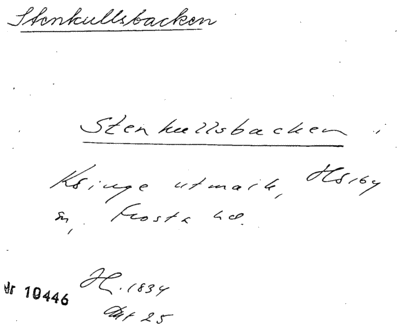 Stenkullsbacken
Stenkullsbacken i
Ksinge utmark, Hörby
sn, Frosta hd.
Nr 10446 H. 1834
Akt 25